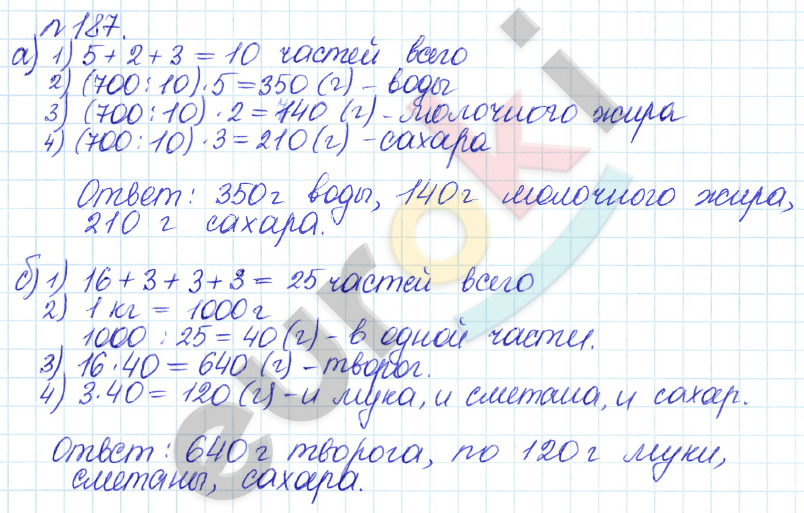 №187.
а) 1) 5+2+3=10 частей всего
2) (700:10)·5=350 (г) - воды
3) (700:10)·2=140 (г) - молочного жира
4) (700:10)·3=210 (г) - сахара
Ответ: 350г воды, 140г молочного жира,
210 г сахара.
б) 1) 16+3+3+3=25 частей всего
2) 1 кг = 1000г
1000 : 25 = 40 (г) - в одной части.
3) 16·40 = 640 (г) - творог.
4) 3·40 = 120 (г) - и мука, и сметана, и сахар.
Ответ: 640г творога, по 120г муки,
сметаны, сахара.
euroki